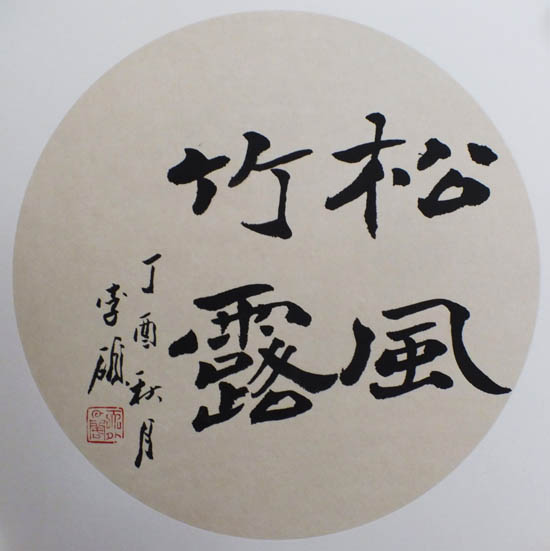 松風
竹露
丁酉秋月
李碩